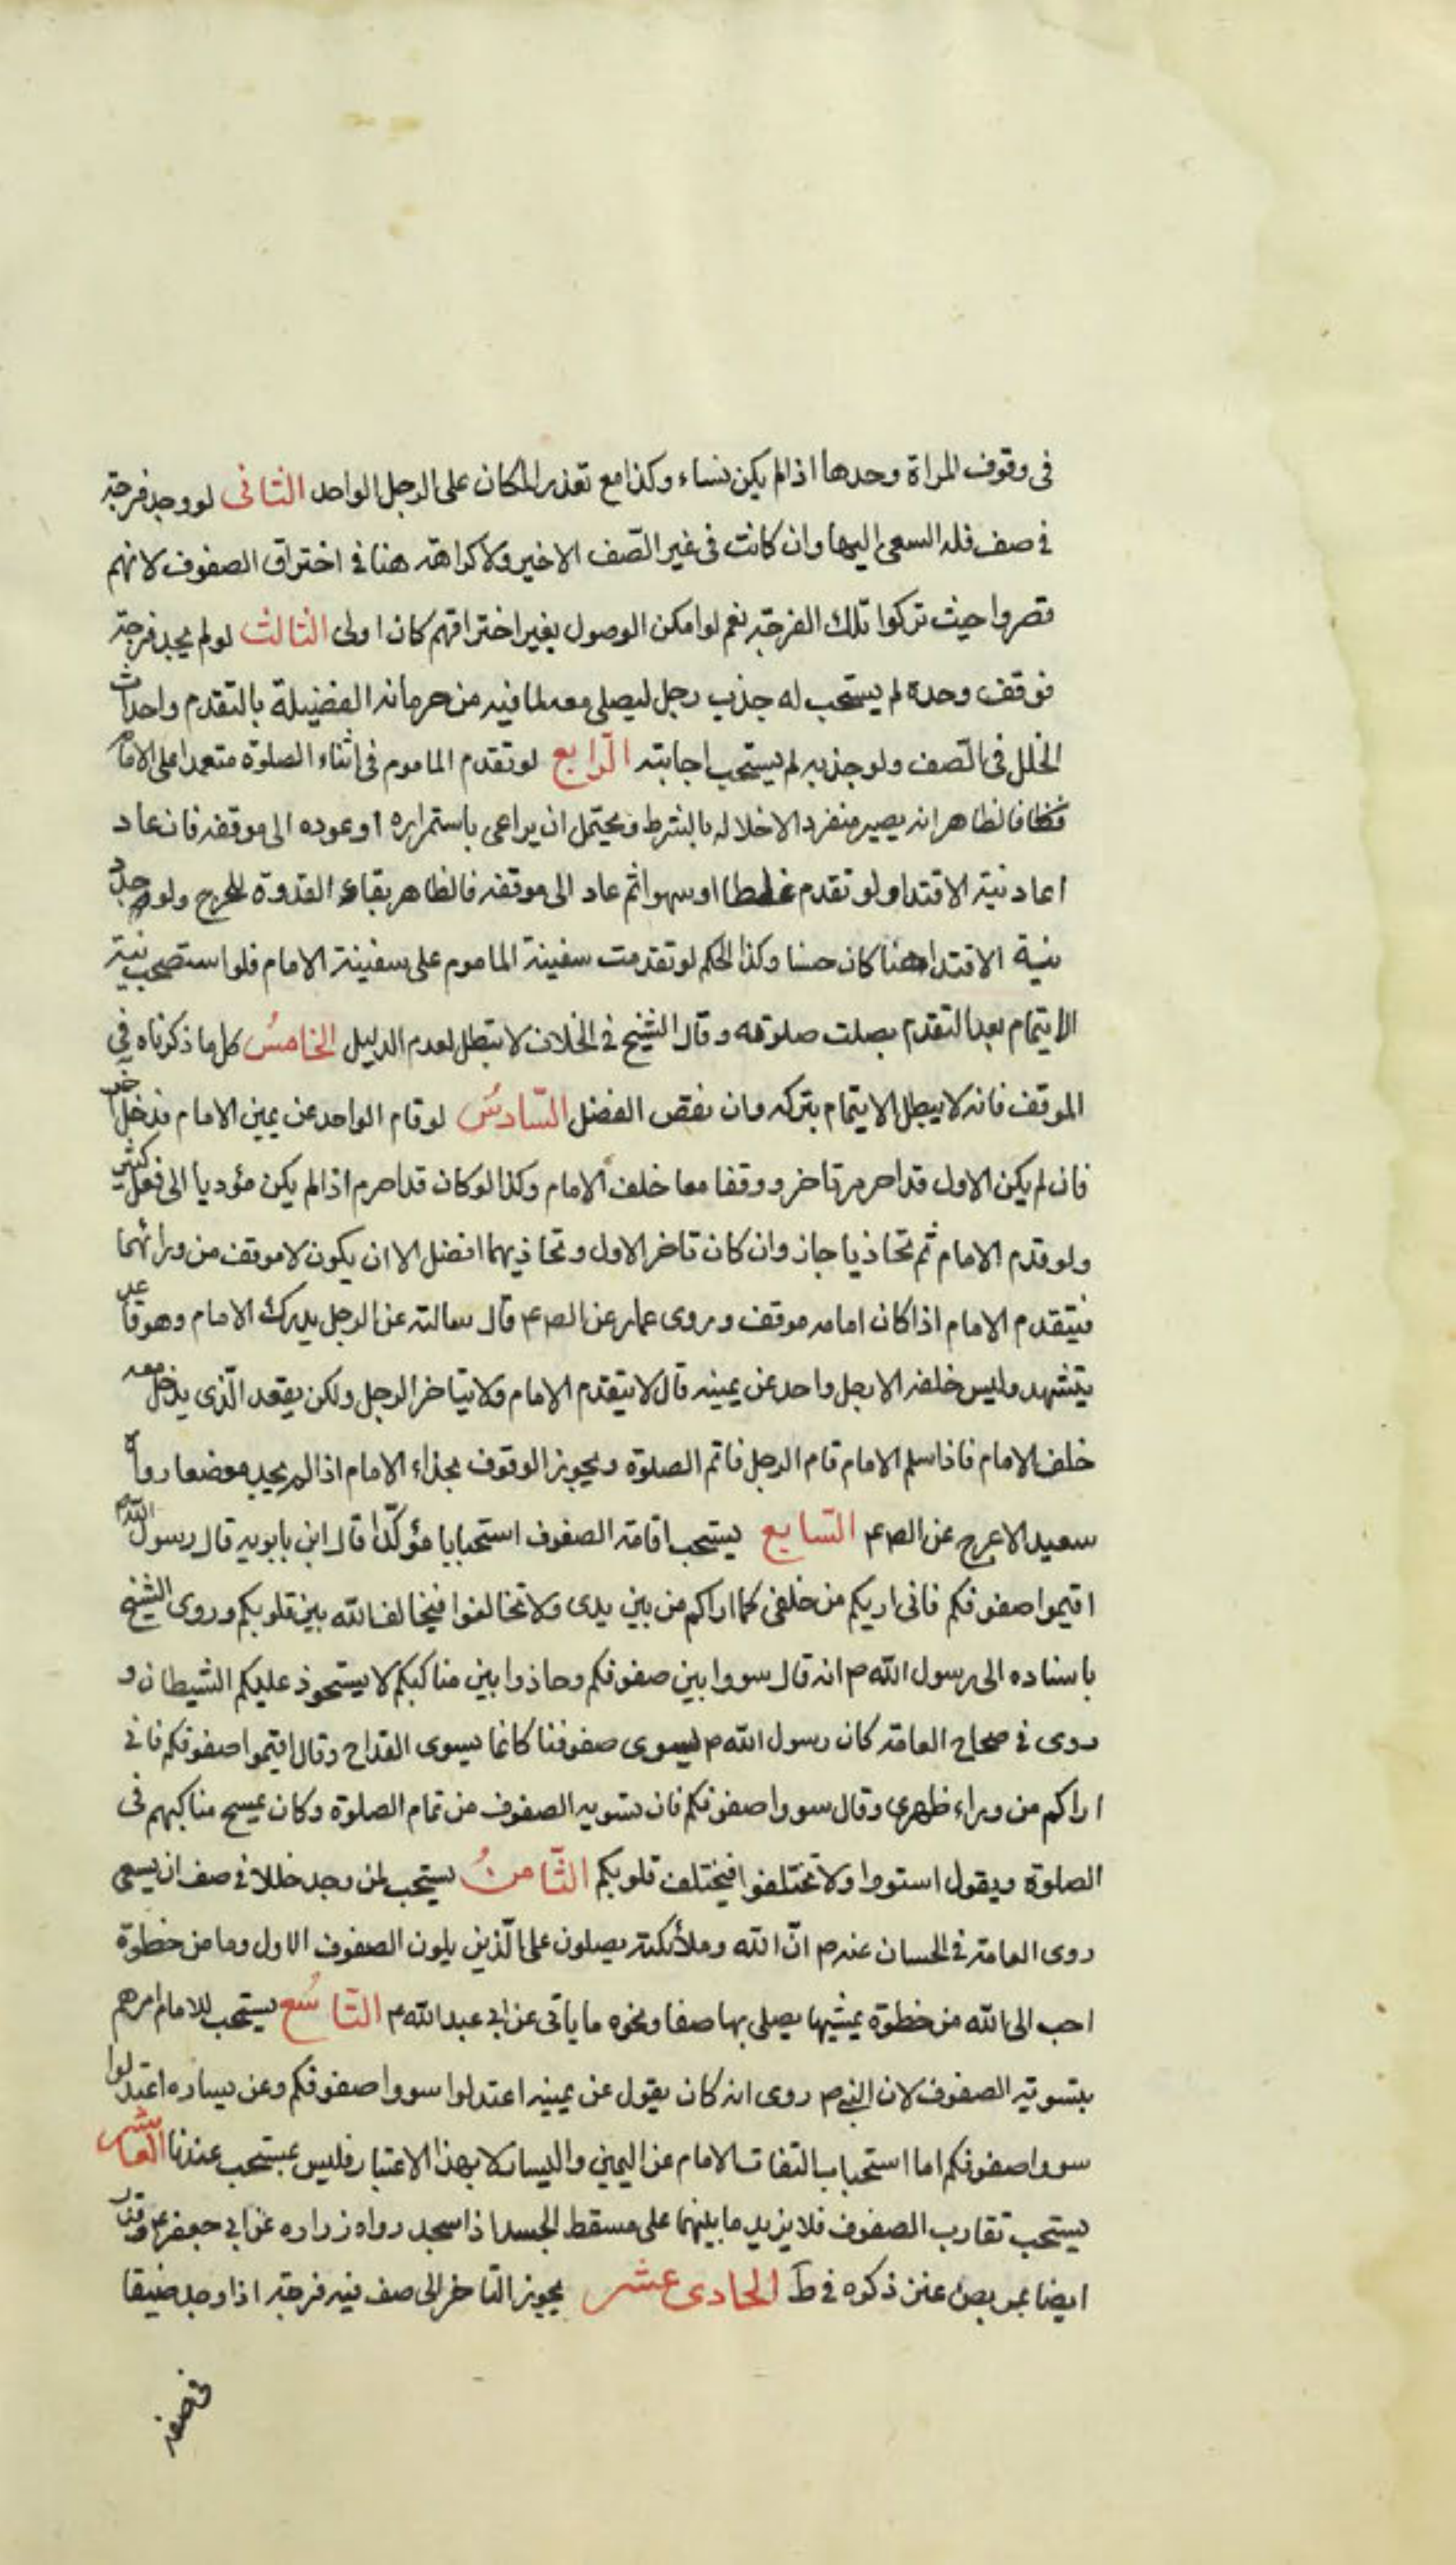 فى وقوف المراة وحدها اذا لم يكن نساء وكذا مع تعذر المكان على الرجل الواحد الثانى لو وجد فرجة
فى صف فله السعى اليها وان كانت فى غير الصّف الاخير ولا كراهة هنا فى اختراق الصفوف لانهم
قصروا حيث تركوا تلك الفرجة نعم لو امكن الوصول بغير اختراقهم كان اولى الثالث لو لم يجد فرجة
فوقف وحده لم يستحب له جذب رجل ليصلى معه لما فيه من حرمانه الفضيلة بالتقدم واحداث
الخلل فى الصّف ولو جذبه لم يستحب اجابته الرّابع لو تقدم الماموم فى اثناء الصلوة متعمدا على الامام
فالظاهر انه يصير منفردا لاخلاله بالشرط ويحتمل ان يراعى باستمراره او عوده الى موقفه فان عاد
اعاد نية الاقتدا ولو تقدم غلطا او سهوا ثم عاد الى موقفه فالظاهر بقاء القدوة للحرج ولو جدد
نية الاقتدا هنا كان حسنا وكذا الحكم لو تقدمت سفينة الماموم على سفينة الامام فلو استصحب نية
الايتمام بعد التقدم بصلت صلوته وقال الشيخ فى الخلاف لا تبطل لعدم الدليل الخامسُ كل ما ذكرناه فى
الموقف فانه لا يبطل الايتمام بتركه وان نقص الفضل السّادسُ لو قام الواحد عن يمين الامام فدخل اخر
فان لم يكن الاول قد احرم تاخر ووقفا معا خلف الامام وكذا لو كان قد احرم اذا لم يكن مئوديا الى فعل كثير
ولو قدم الامام ثم تحاذيا جاز وان كان تاخر الاول وتحاذيهما افضل الا ان يكون لا موقف من ورائهما
فيتقدم الامام اذا كان امامه موقف وروى عمار عن الص ع قال سالته عن الرجل يدرك الامام وهو قاعد
يتشهد وليس خلفه الا رجل واحد عن يمينه قال لا يتقدم الامام ولا يتاخر الرجل ولكن يقعد الّذى يدخل معه
خلف الامام فاذا سلم الامام قام الرجل فاتم الصلوة ويجوز الوقوف بحذاء الامام اذا لم يجد موضعا رواه
سعيد الاعرج عن الص ع السّابع يستحب اقامة الصفوف استحبابا مؤكّدا قال ابن بابويه قال رسول اللّه ص
اقيموا صفوفكم فانى اريكم من خلفى كما اراكم من بين يدى ولا تخالفوا فيخالف اللّه بين قلوبكم وروى الشيخ
باسناده الى رسول اللّه ص انه قال سووا بين صفوفكم وحاذوا بين مناكبكم لا يستحوذ عليكم الشيطان و
روى فى صحاح العامة كان رسول اللّه ص يسوى صفوفنا كانما يسوى القداح وقال اقيموا صفوفكم فانى
اراكم من وراء ظهرى وقال سووا صفوفكم فان تسويه الصفوف من تمام الصلوة وكان يمسح مناكبهم فى
الصلوة ويقول استووا ولا تختلفوا فيختلف قلوبكم الثّامنُ يستحب لمن وجد خللا فى صف ان يسعى
روى العامة فى الحسان عنه ص انّ اللّه وملائكته يصلون على الّذين يلون الصفوف الاول وما من خطوة
احب الى اللّه من خطوة يمشيها يصلى بها صفا ونحوه ما ياتى عن ابى عبد اللّه ع التاسُع يستحب للامام امرهم
بتسوية الصفوف لان النبى ص روى انه كان يقول عن يمينه اعتدلوا سووا صفوفكم وعن يساره اعتدلوا
سووا صفوفكم اما استحباب التفات الامام عن اليمين واليسار لا بهذا الاعتبار فليس بمستحب عندنا العاشر
يستحب تقارب الصفوف فلا يزيد ما بينهما على مسقط الجسد اذا سجد رواه زراره عن ابى جعفر ع وقدر
ايضا بمربض عنز ذكره فى ط الحادى عشر يجوز التاخر الى صف فيه فرجة اذا وجد ضيقا
فى صفه